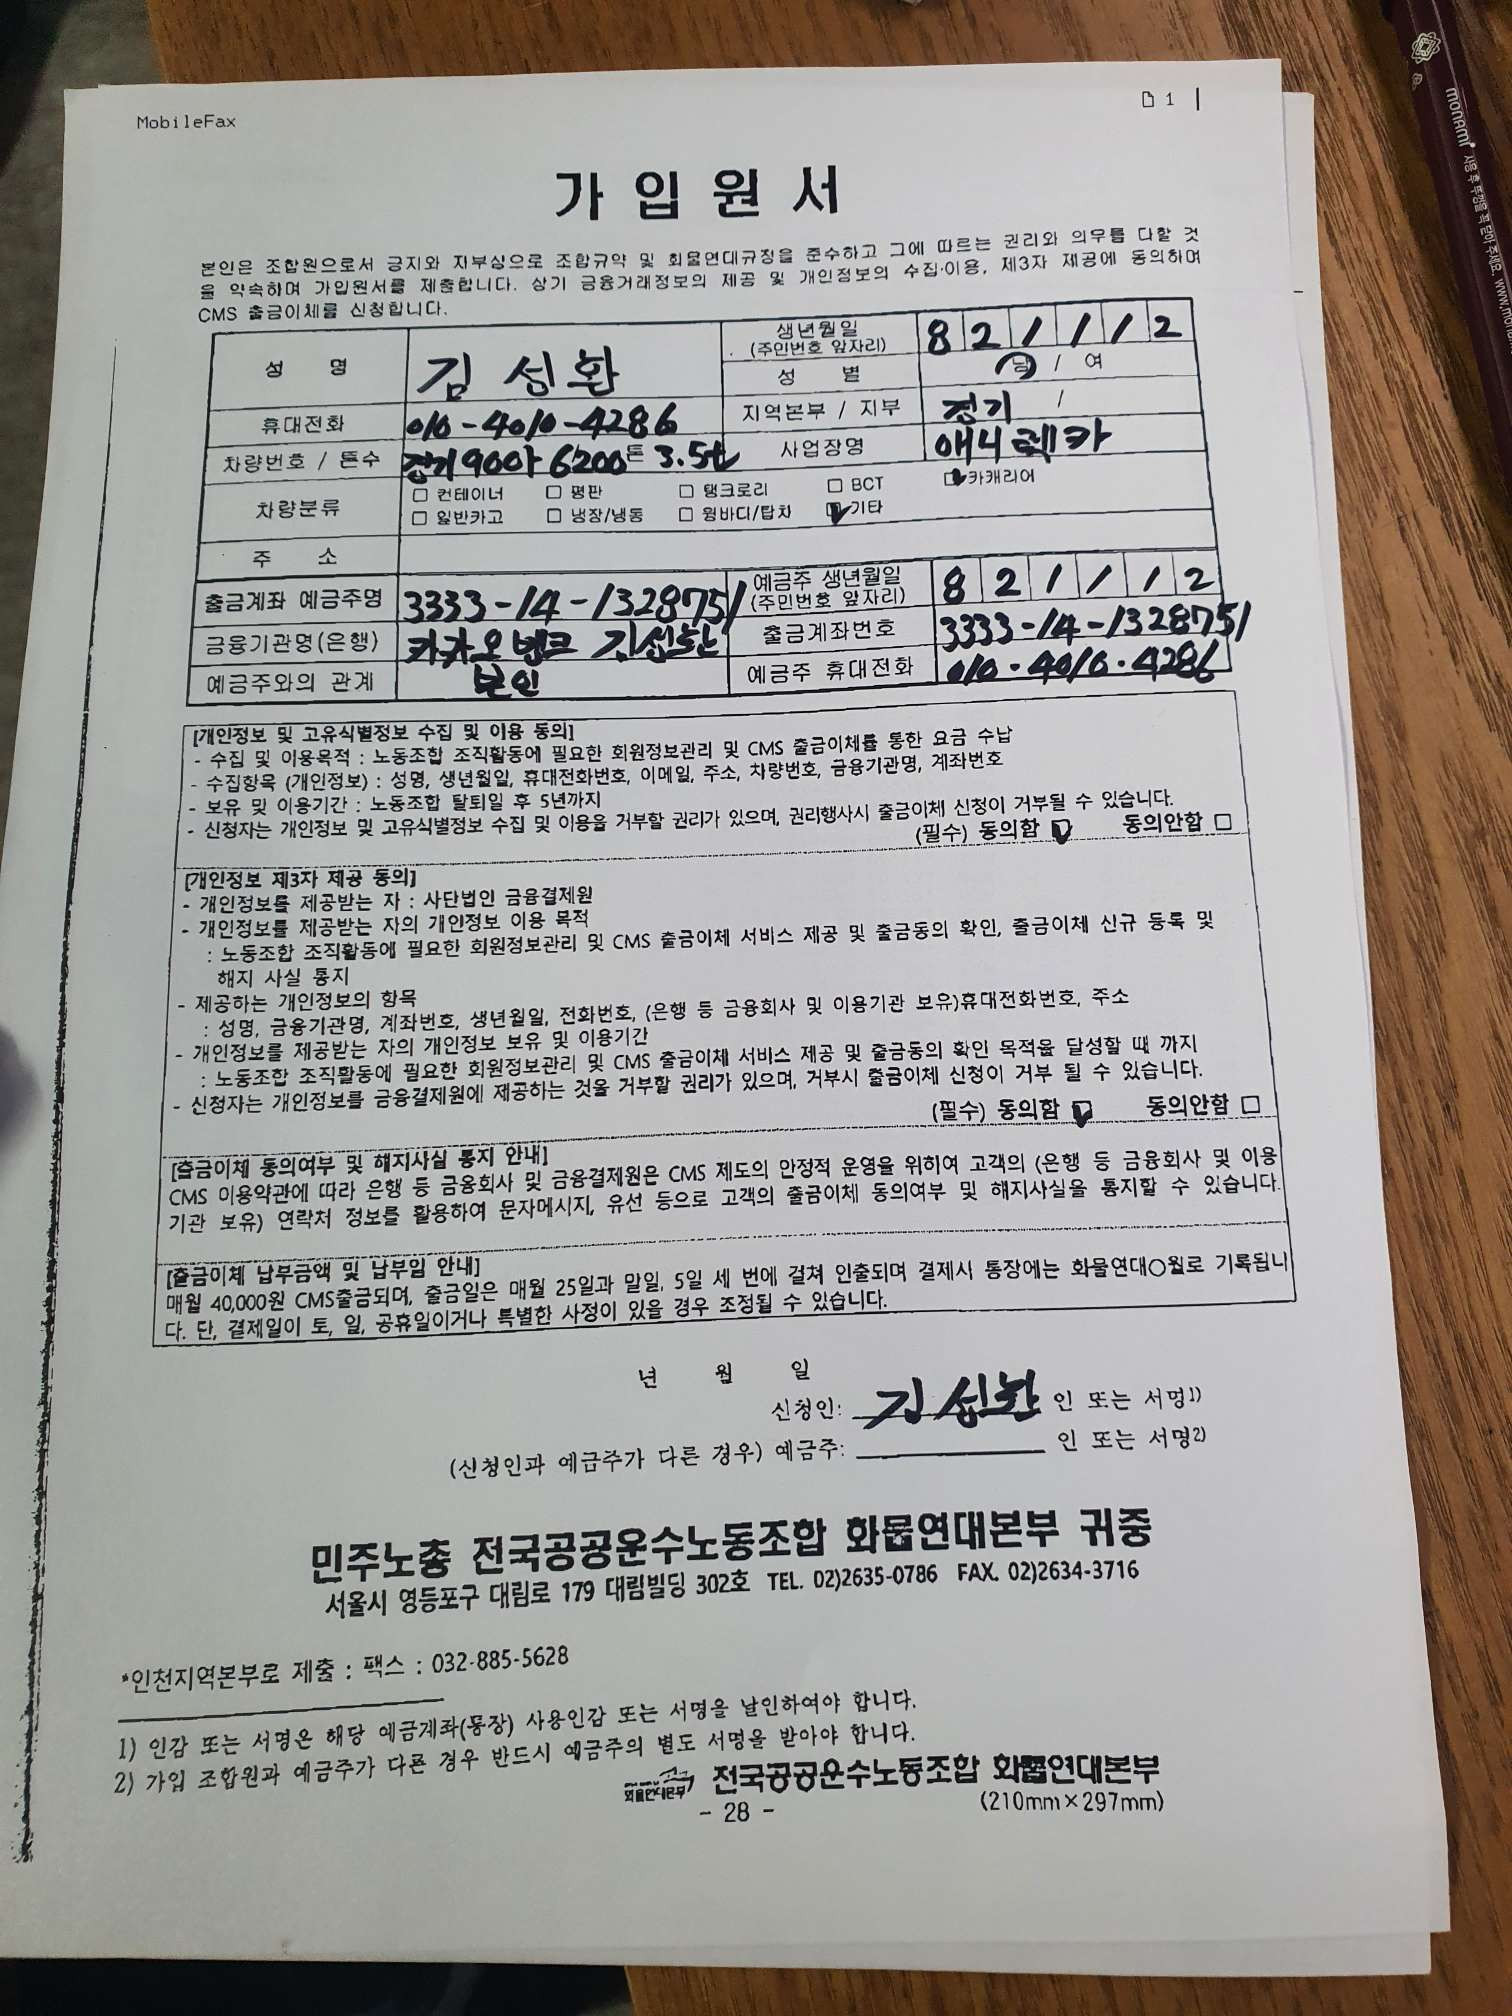 MobileFax
1
가 입 원 서
본인은 조합원으로서 긍지와 자부심으로 조합규약 및 화물연대규정을 준수하고 그에 따르는 권리와 의무를 다할 것
을 약속하며 가입원서를 제출합니다. 상기 금융거래정보의 제공 및 개인정보의 수집·이용, 제3자 제공에 동의하며
CMS 출금이체를 신청합니다.
성 명 김성환 생년월일 (주민번호 앞자리) 8 2 1 1 1 2
성 별 남 / 여
휴대전화 010-4010-4286 지역본부 / 지부 경기 /
차량번호 / 톤수 경기90아6200 톤 3.5 사업장명 애니렉카
차량분류 □ 컨테이너 □ 평판 □ 탱크로리 □ BCT □ 카캐리어
□ 일반카고 □ 냉장/냉동 □ 윙바디/탑차 □ 기타
주 소
출금계좌 예금주명 3333-14-1328751 예금주 생년월일 (주민번호 앞자리) 8 2 1 1 1 2
금융기관명(은행) 카카오뱅크 김성환 출금계좌번호 3333-14-1328751
예금주와의 관계 본인 예금주 휴대전화 010-4010-4286
[개인정보 및 고유식별정보 수집 및 이용 동의]
- 수집 및 이용목적 : 노동조합 조직활동에 필요한 회원정보관리 및 CMS 출금이체를 통한 요금 수납
- 수집항목 (개인정보) : 성명, 생년월일, 휴대전화번호, 이메일, 주소, 차량번호, 금융기관명, 계좌번호
- 보유 및 이용기간 : 노동조합 탈퇴일 후 5년까지
- 신청자는 개인정보 및 고유식별정보 수집 및 이용을 거부할 권리가 있으며, 권리행사시 출금이체 신청이 거부될 수 있습니다.
(필수) 동의함 □ 동의안함 □
[개인정보 제3자 제공 동의]
- 개인정보를 제공받는 자 : 사단법인 금융결제원
- 개인정보를 제공받는 자의 개인정보 이용 목적
: 노동조합 조직활동에 필요한 회원정보관리 및 CMS 출금이체 서비스 제공 및 출금동의 확인, 출금이체 신규 등록 및
해지 사실 통지
- 제공하는 개인정보의 항목
: 성명, 금융기관명, 계좌번호, 생년월일, 전화번호, (은행 등 금융회사 및 이용기관 보유)휴대전화번호, 주소
- 개인정보를 제공받는 자의 개인정보 보유 및 이용기간
: 노동조합 조직활동에 필요한 회원정보관리 및 CMS 출금이체 서비스 제공 및 출금동의 확인 목적을 달성할 때 까지
- 신청자는 개인정보를 금융결제원에 제공하는 것을 거부할 권리가 있으며, 거부시 출금이체 신청이 거부 될 수 있습니다.
(필수) 동의함 □ 동의안함 □
[출금이체 동의여부 및 해지사실 통지 안내]
CMS 이용약관에 따라 은행 등 금융회사 및 금융결제원은 CMS 제도의 안정적 운영을 위하여 고객의 (은행 등 금융회사 및 이용
기관 보유) 연락처 정보를 활용하여 문자메시지, 유선 등으로 고객의 출금이체 동의여부 및 해지사실을 통지할 수 있습니다.
[출금이체 납부금액 및 납부일 안내]
매월 40,000원 CMS출금되며, 출금일은 매월 25일과 말일, 5일 세 번에 걸쳐 인출되며 결제시 통장에는 화물연대○월로 기록됩니
다. 단, 결제일이 토, 일, 공휴일이거나 특별한 사정이 있을 경우 조정될 수 있습니다.
년 월 일
신청인: 김성환 인 또는 서명1)
(신청인과 예금주가 다른 경우) 예금주: 인 또는 서명2)
민주노총 전국공공운수노동조합 화물연대본부 귀중
서울시 영등포구 대림로 179 대림빌딩 302호 TEL. 02)2635-0786 FAX. 02)2634-3716
*인천지역본부로 제출 : 팩스 : 032-885-5628
1) 인감 또는 서명은 해당 예금계좌(통장) 사용인감 또는 서명을 날인하여야 합니다.
2) 가입 조합원과 예금주가 다른 경우 반드시 예금주의 별도 서명을 받아야 합니다.
화물연대본부 전국공공운수노동조합 화물연대본부
- 28 - (210mm×297mm)
monami
사용 후 뚜껑을 꼭 닫아 주세요.